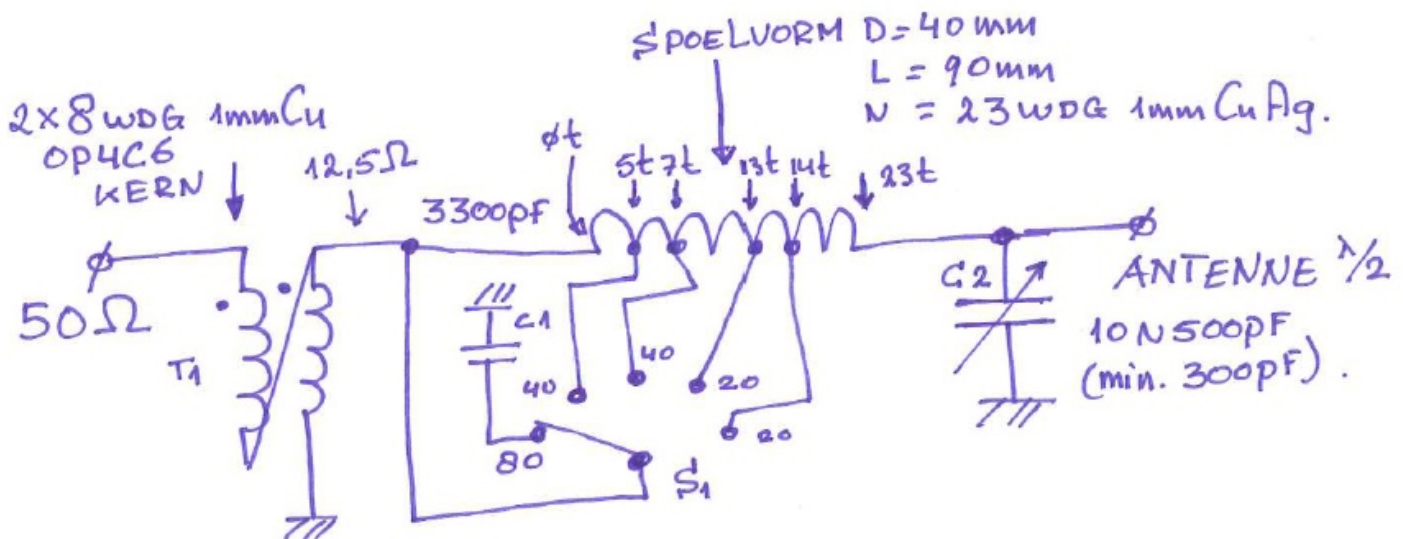 SPOELVORM D=40mm
L = 90mm
N = 23WDG 1mm CuAg.
2×8WDG 1mmCu
OP4C6
KERN
12,5Ω
3300pF
øt
5t
7t
13t
14t
23t
50Ω
T1
C1
40
40
20
20
80
S1
C2
ANTENNE λ/2
10N500pF
(min. 300pF).